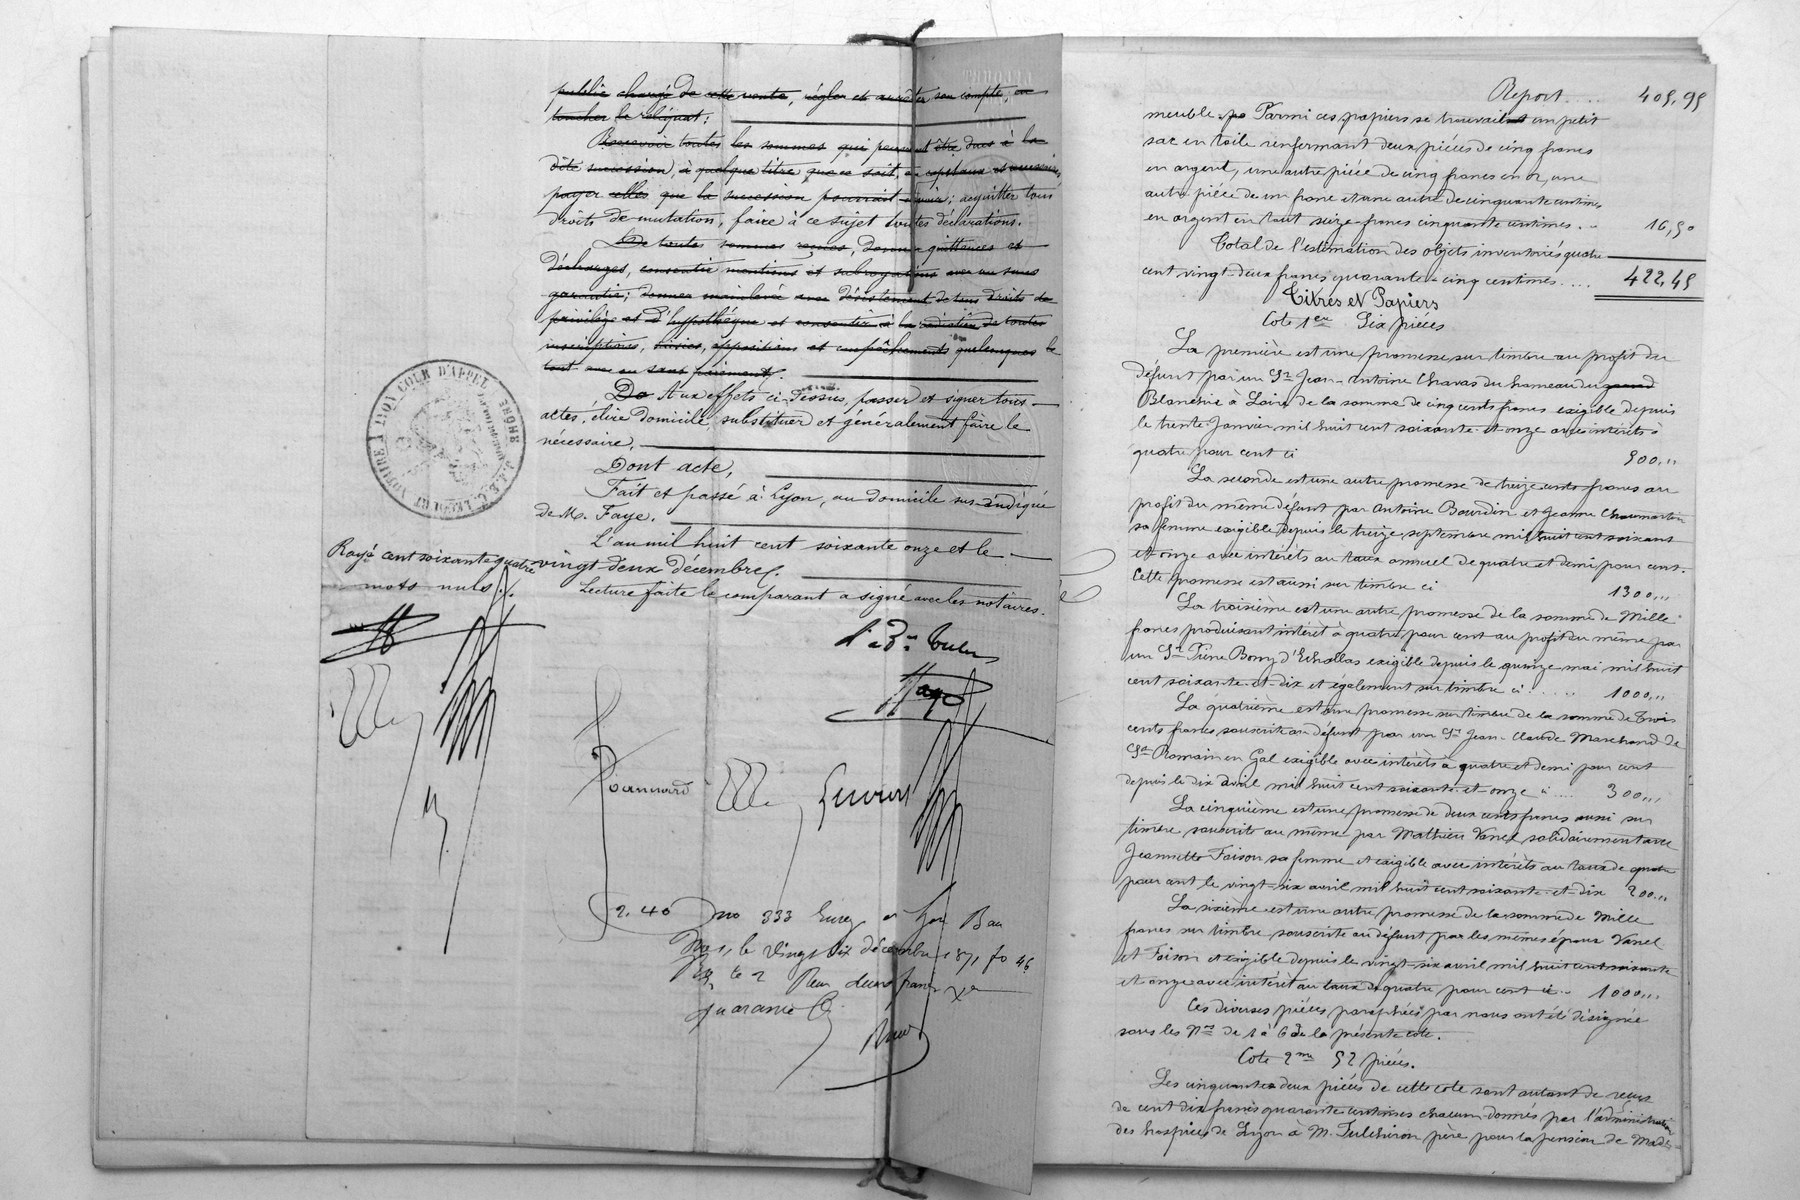 public chargé de cette vente, régler et arrêter son compte, en
toucher le reliquat :
Recevoir toutes les sommes qui peuvent être dues à la
dite succession, à quelque titre que ce soit, en capitaux et accessoires,
payer celles que la succession pourrait devoir; acquitter tous
droits de mutation, faire à ce sujet toutes déclarations.
De toutes sommes reçues, donner quittances et
décharges, consentir mentions et subrogations avec ou sans
garantie; donner mainlevée avec désistement de tous droits de
privilège et d'hypothèque et consentir à la radiation de toutes
inscriptions, saisies, oppositions et empêchements quelconques le
tout avec ou sans paiement.
De Aux effets ci-dessus, passer et signer tous
actes, élire domicile, substituer et généralement faire le
nécessaire.
Dont acte,
Fait et passé à Lyon, au domicile sus-indiqué
de M. Faye.
L'an mil huit cent soixante onze et le
vingt-deux décembre.
Lecture faite le comparant a signé avec les notaires.
Rayé cent soixante quatre
mots nuls.
NOTAIRE À LYON COUR D'APPEL RHÔNE
Faye
2.40 333
le vingt six décembre 1871 fo 46
deux francs
quarante c.
Report .... 405,95
meuble Parmi ces papiers se trouvait un petit
sac en toile renfermant deux pièces de cinq francs
en argent, une autre pièce de cinq francs en or, une
autre pièce de un franc et une autre de cinquante centimes
en argent en tout seize francs cinquante centimes .. 16,50
Total de l'estimation des objets inventoriés quatre
cent vingt-deux francs quarante-cinq centimes .... 422,45
Titres et Papiers
Cote 1ere Six pièces
La première est une promesse sur timbre au profit du
défunt par un Sr Jean-Antoine Chavas du hameau du grand
à Loire de la somme de cinq cents francs exigible depuis
le trente Janvier mil huit cent soixante-et-onze avec intérêts à
quatre pour cent ci 500,"
La seconde est une autre promesse de treize cents francs au
profit du même défunt par Antoine Bourdin et Jeanne Chaumartin
sa femme exigible depuis le treize septembre mil huit cent soixante
et-onze avec intérêts au taux annuel de quatre et demi pour cent.
Cette promesse est aussi sur timbre ci 1300,"
La troisième est une autre promesse de la somme de Mille
francs produisant intérêt à quatre pour cent au profit du même par
un Sr Pierre Bony d'Echallas exigible depuis le quinze mai mil huit
cent soixante-et-dix et également sur timbre ci .... 1000,"
La quatrième est une promesse sur timbre de la somme de Trois
cents francs souscrite au défunt par un Sr Jean-Claude Marchand de
St Romain en Gal exigible avec intérêts à quatre et demi pour cent
depuis le dix avril mil huit cent soixante-et-onze ci ... 300,"
La cinquième est une promesse de deux cents francs aussi sur
timbre souscrite au même par Mathieu Vanel solidairement avec
Jeannette Foison sa femme et exigible avec intérêts au taux de quatre
pour cent le vingt-six avril mil huit cent soixante-et-dix 200,"
La sixième est une autre promesse de la somme de Mille
francs sur timbre souscrite au défunt par les mêmes époux Vanel
et Foison et exigible depuis le vingt-six avril mil huit cent soixante
et onze avec intérêt au taux de quatre pour cent ci .. 1000,"
Ces diverses pièces paraphées par nous ont été désignée
sous les Nos de 1 à 6 de la présente cote.
Cote 2me 52 pièces.
Les cinquante deux pièces de cette cote sont autant de reçus
de cent dix francs quarante centimes chacun donnés par l'administration
des hospices de Lyon à M. Tulchiron père pour la pension de Made